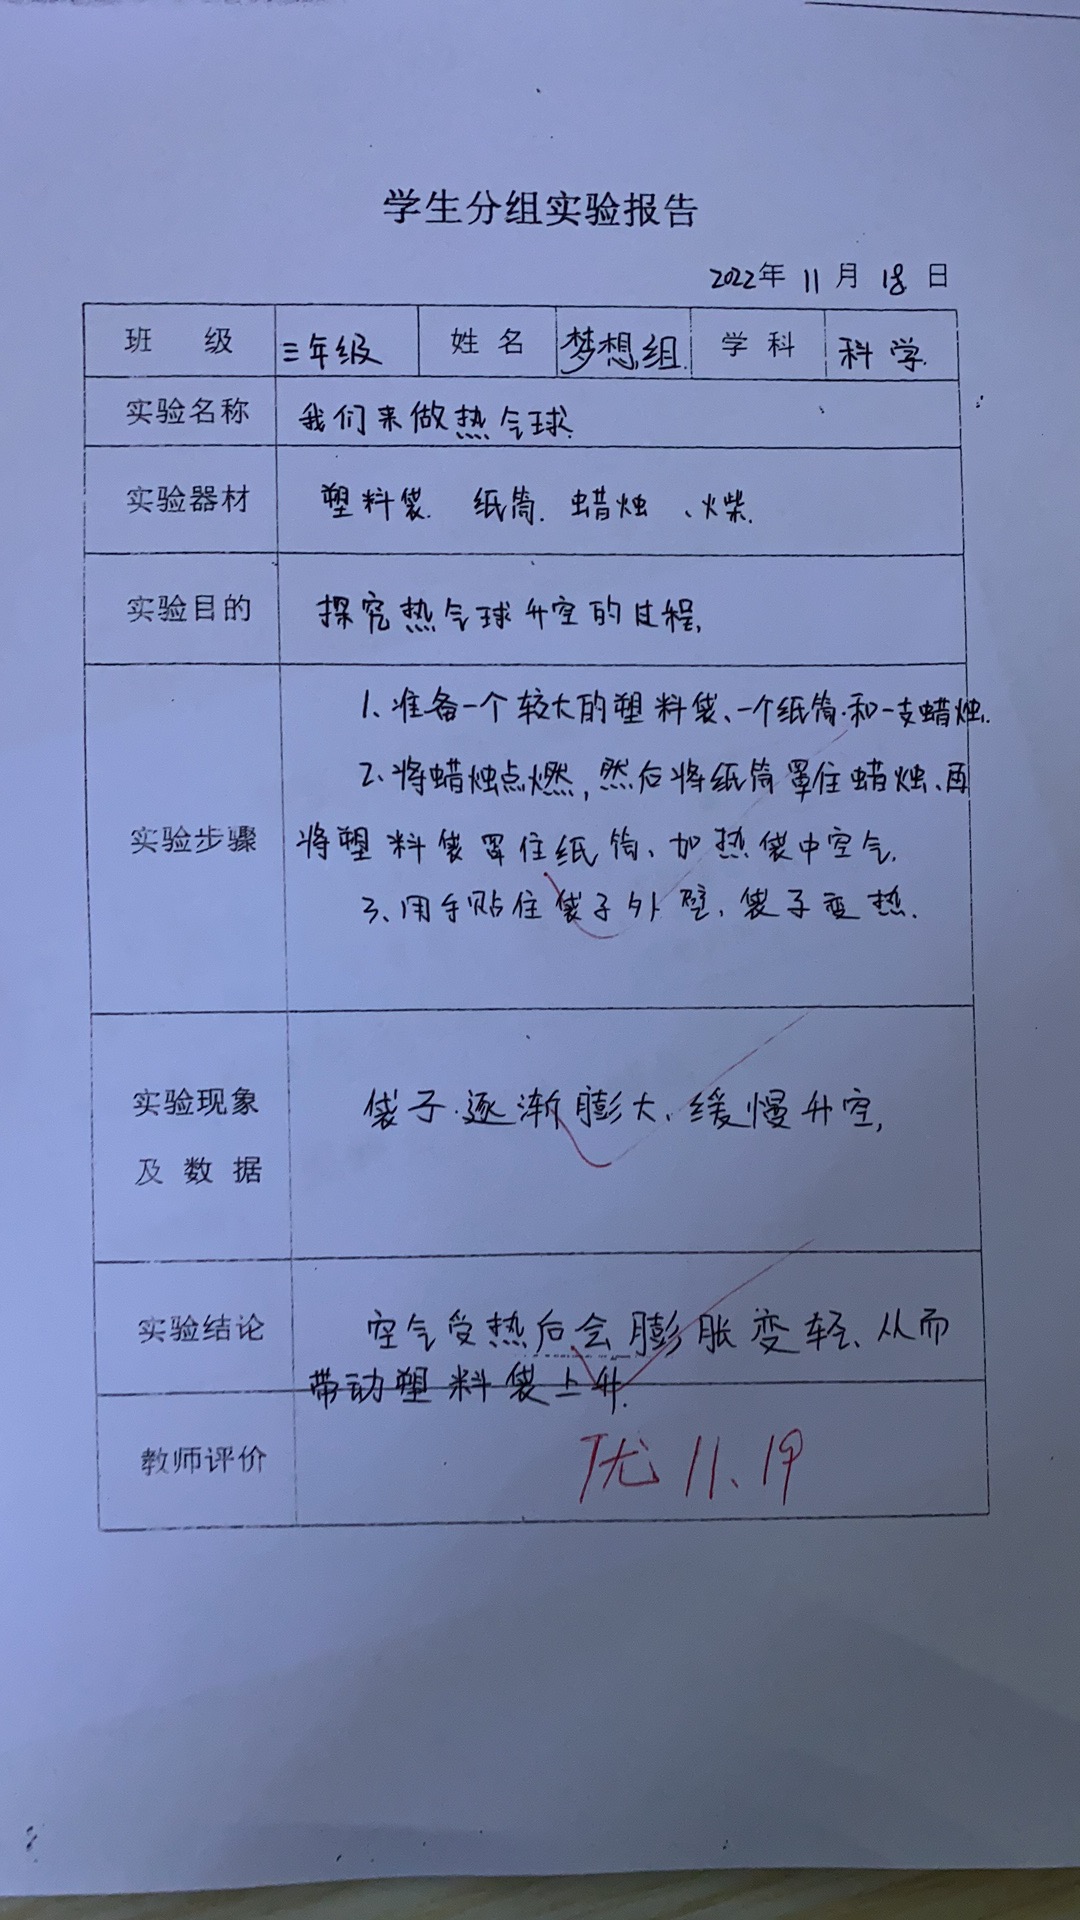 学生分组实验报告
2022年 11 月 18 日
班 级 三年级 姓名 梦想组. 学科 科学.
实验名称 我们来做热气球.
实验器材 塑料袋. 纸筒. 蜡烛、火柴.
实验目的 探究热气球升空的过程.
1、准备一个较大的塑料袋、一个纸筒.和一支蜡烛.
2、将蜡烛点燃,然后将纸筒罩住蜡烛、再
实验步骤 将塑料袋罩住纸筒、加热袋中空气.
3、用手贴住袋子外壁、袋子变热.
实验现象 袋子.逐渐膨大、缓慢升空,
及数据
实验结论 空气受热后会膨胀变轻、从而
带动塑料袋上升.
教师评价 优 11、19